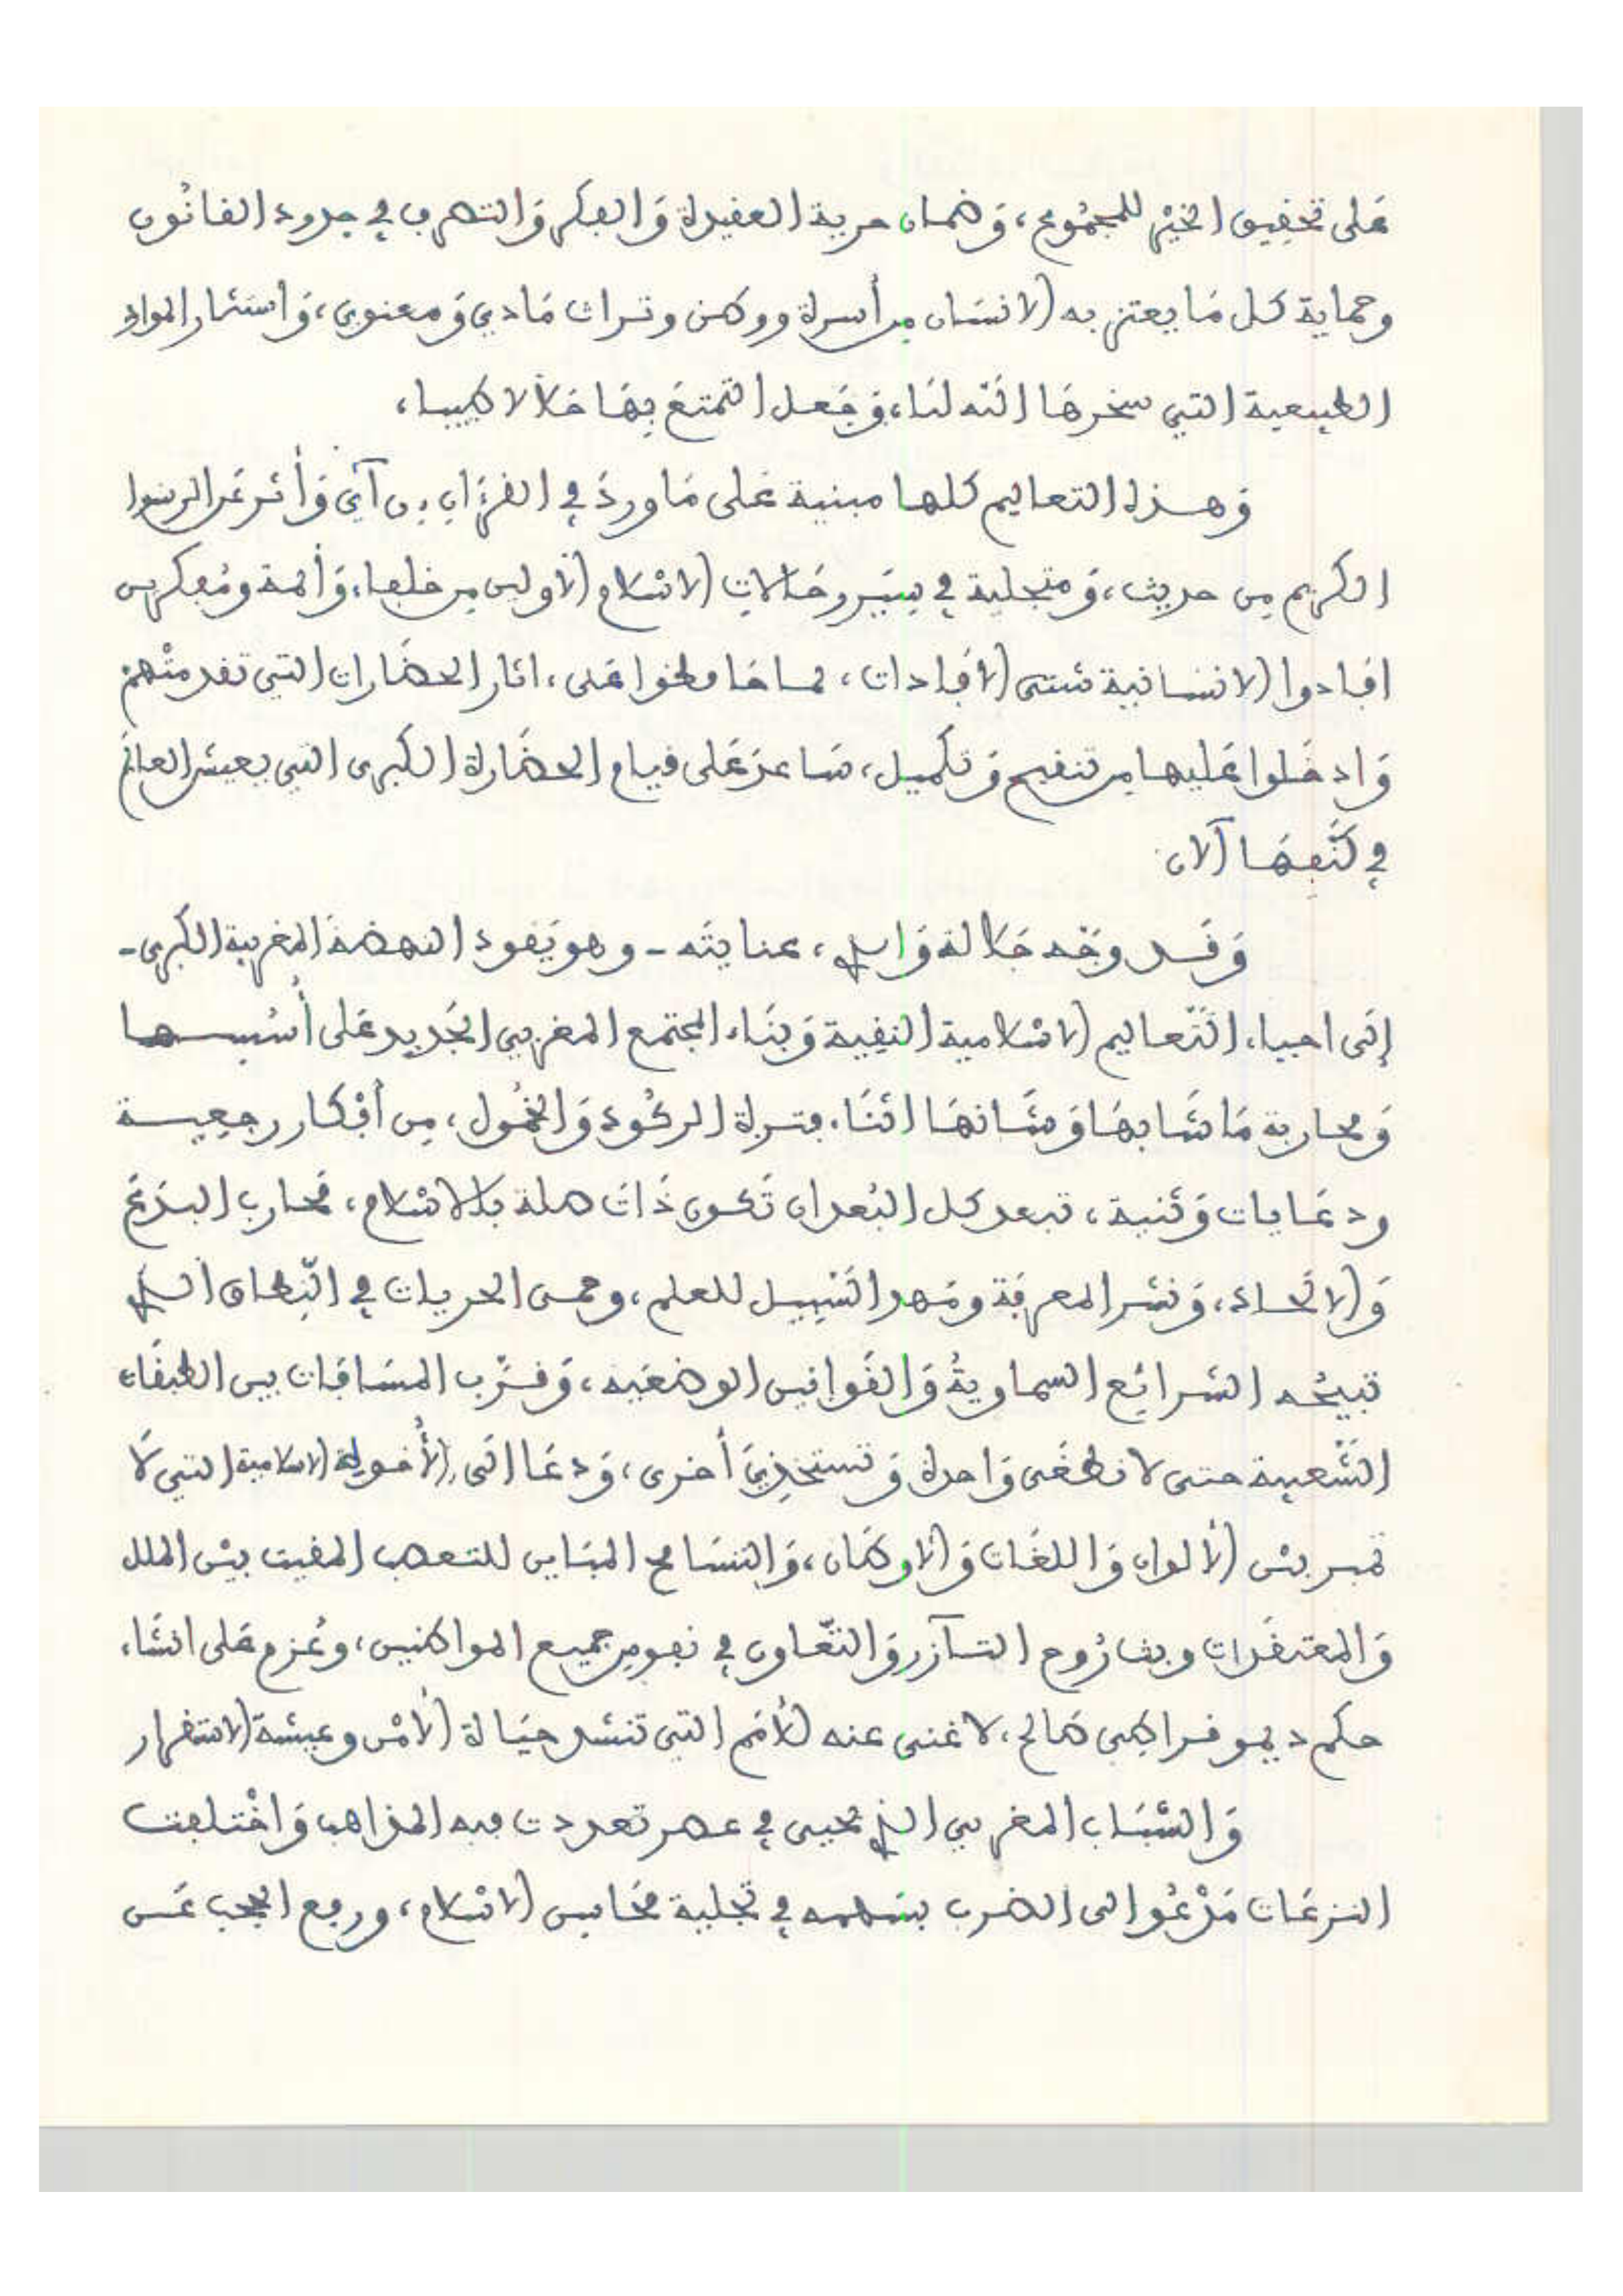 عَلى تحقِيق الخيْر للمجمُوع، وَضمان حرية العقيدة وَالفكر وَالتصرف في حدود القانُون
وحماية كل مَا يعتز به الانسَان من أسرة ووطن وتراث مَادي وَمعنوي، وَاستثمار المواد
الطبيعية التي سخرهَا الله لنَا، وَجَعل التمتعَ بهَا حَلالا طيبا،
وَهـذه التعاليم كلها مبنية عَلى مَا وردَ في القرءَان مِن آي وَأثر عَن الرسول
الكريم مِن حديث، وَمتجلية في سِيَر وحَالات رجالات الاسْلام الأولين مِن خلفاء، وَأئمة ومُفكرين
افادوا الانسانية شتى الافَادات، لما حَافظوا عَلى، اثار الحضَارات التي تقدمتْهم
وَادخَلوا عَليها من تنقيح وَتكميل، سَاعدَ عَلى قيام الحضَارة الكبرى التي يعيش العالَم
في كَنَفهَا الآن
وَقـد وجّه جَلالة وَالدي، عنايتَه - وهو يَقود النهضة المغربية الكبرى -
إلَى احياء، التَّعاليم الاسْلامية النقِية وَبنَاء المجتمع المغربي الجَديد عَلى أسُسـها
وَمحاربة مَا شَابهَا وَشَانهَا اثنَاء فترة الركُود وَالخمُول، مِن أفْكار رجعيـة
ودعَايات وَثنية، تبعد كل البُعد ان تَكون ذَات صلة بالاسْلام، فحَارب البدَع
وَالالحَـاد، وَنشر المعرفَة ومَهد السَّبِيـل للعلم، وحمى الحريات في النّطاق الـذي
تبيحُه الشرائع السماويةُ وَالقَوانين الوضعَيه، وَقرَّب المسَافَات بين الطبقَات
الشَّعبية حتى لا تطغَى وَاحدة وَتستخذِيَ أخرى، وَدعَا الَى الأُخوة الاسلامية التي لَا
تميز بيْن الألوان وَاللغَات وَالأوطَان، وَالتسَامح المبَاين للتعصب المقيت بيْن الملل
وَالمعتقَدات وبث رُوح التـآزر وَالتّعاون في نفوس جميع المواطنين، وعُزم عَلى انشَاء
حكم ديموقراطي صَالح، لا غنى عنه للأمَم التي تنشد حيَاة الأمْن وعيشة الاستقرار
وَالشبَاب المغربي الذي يحيى في عصر تعددت فيه المذاهب وَاخْتلفت
النزعَات مَدْعُو الى الضرب بسَهمه في تجلية محَاسن الاسْلام، ورفع الحجب عَـن